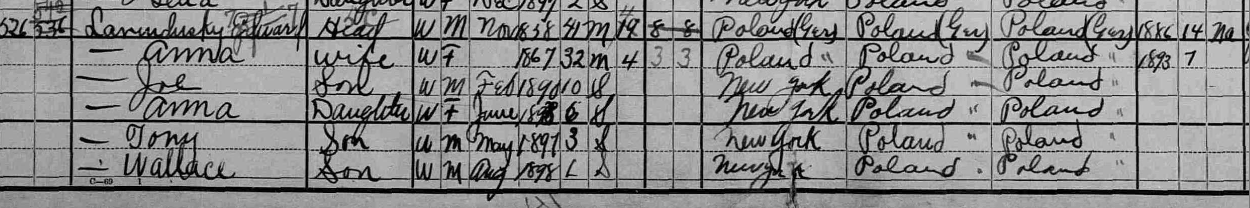 Daughter W F Dec 1899 S New York Poland
526 Edward Head W M Nov 1858 41 M 8 8 Poland (Ger) Poland (Ger) Poland (Ger) 1886 14 Na
— Anna Wife W F 1867 32 M 4 3 3 Poland " Poland " Poland " 1893 7
— Joe Son W M Feb 1890 10 S New York Poland " Poland "
— Anna Daughter W F June 6 S New York Poland " Poland "
— Tony Son W M May 1897 3 S New York Poland " Poland "
— Wallace Son W M Aug 1898 S New York Poland " Poland "